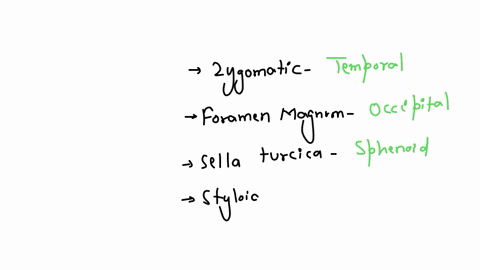 → Zygomatic - Temporal
→ Foramen Magnum - Occipital
→ Sella turcica - Sphenoid
→ Styloic